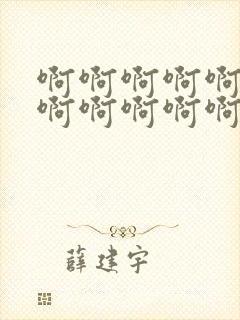 啊啊啊啊啊
啊啊啊啊啊
薛建宇